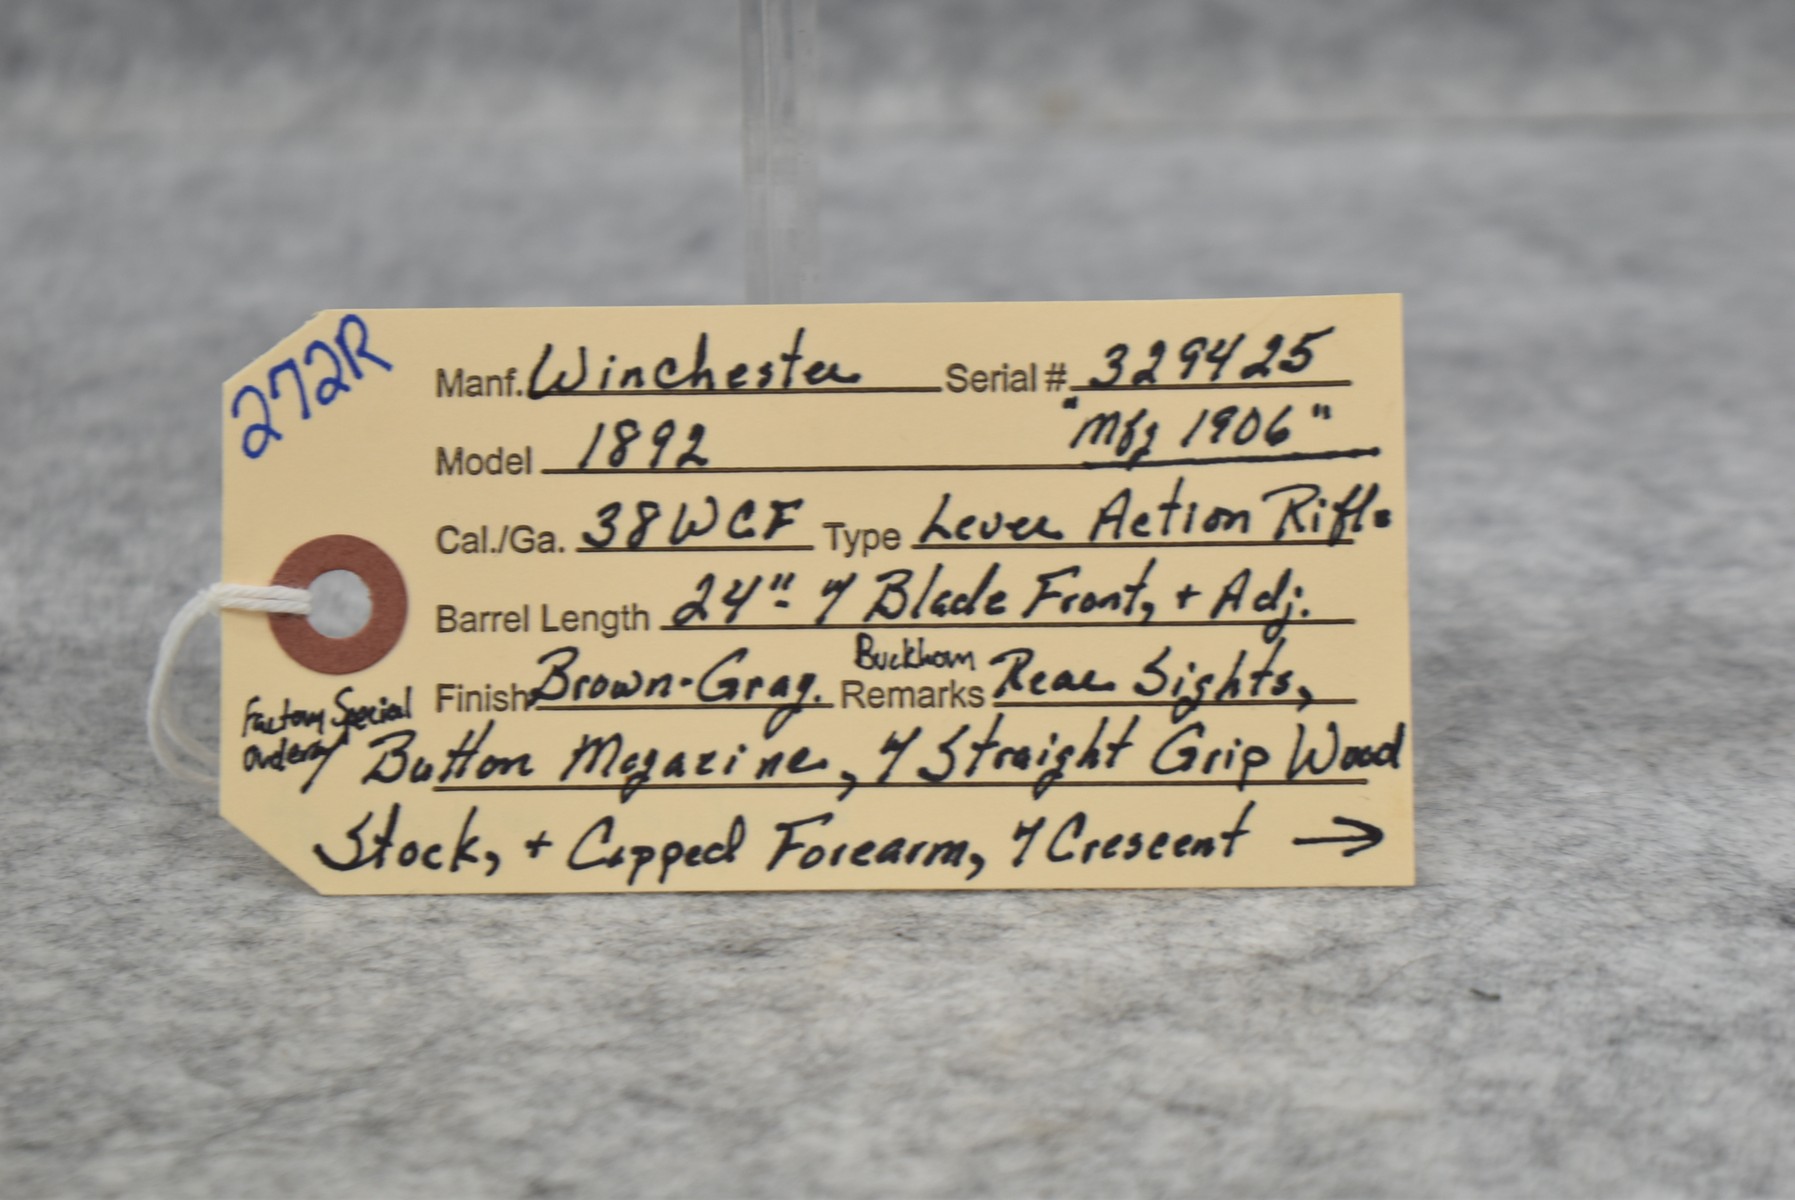 272R
Manf. Winchester Serial # 329425
Model 1892 "Mfg 1906"
Cal./Ga. 38 WCF Type Lever Action Rifle
Barrel Length 24" w/ Blade Front, + Adj.
Buckhorn
Finish Brown-Gray. Remarks Rear Sights,
Factory Special
Order w/ Button Magazine, w/ Straight Grip Wood
Stock, + Capped Forearm, w/ Crescent →